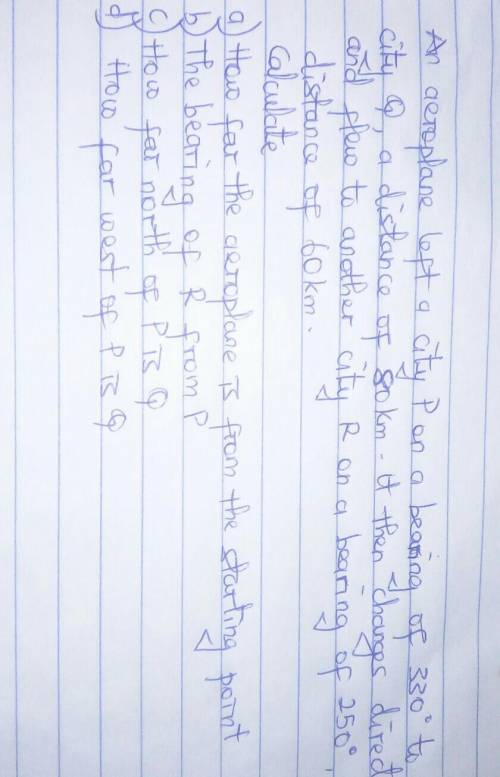 An aeroplane left a city P on a bearing of 330° to
city Q, a distance of 80km. It then changes direct
and flew to another city R on a bearing of 250°,
distance of 60km.
Calculate
a) How far the aeroplane is from the starting point
b) The bearing of R from P
c) How far north of P is Q
d) How far west of P is Q